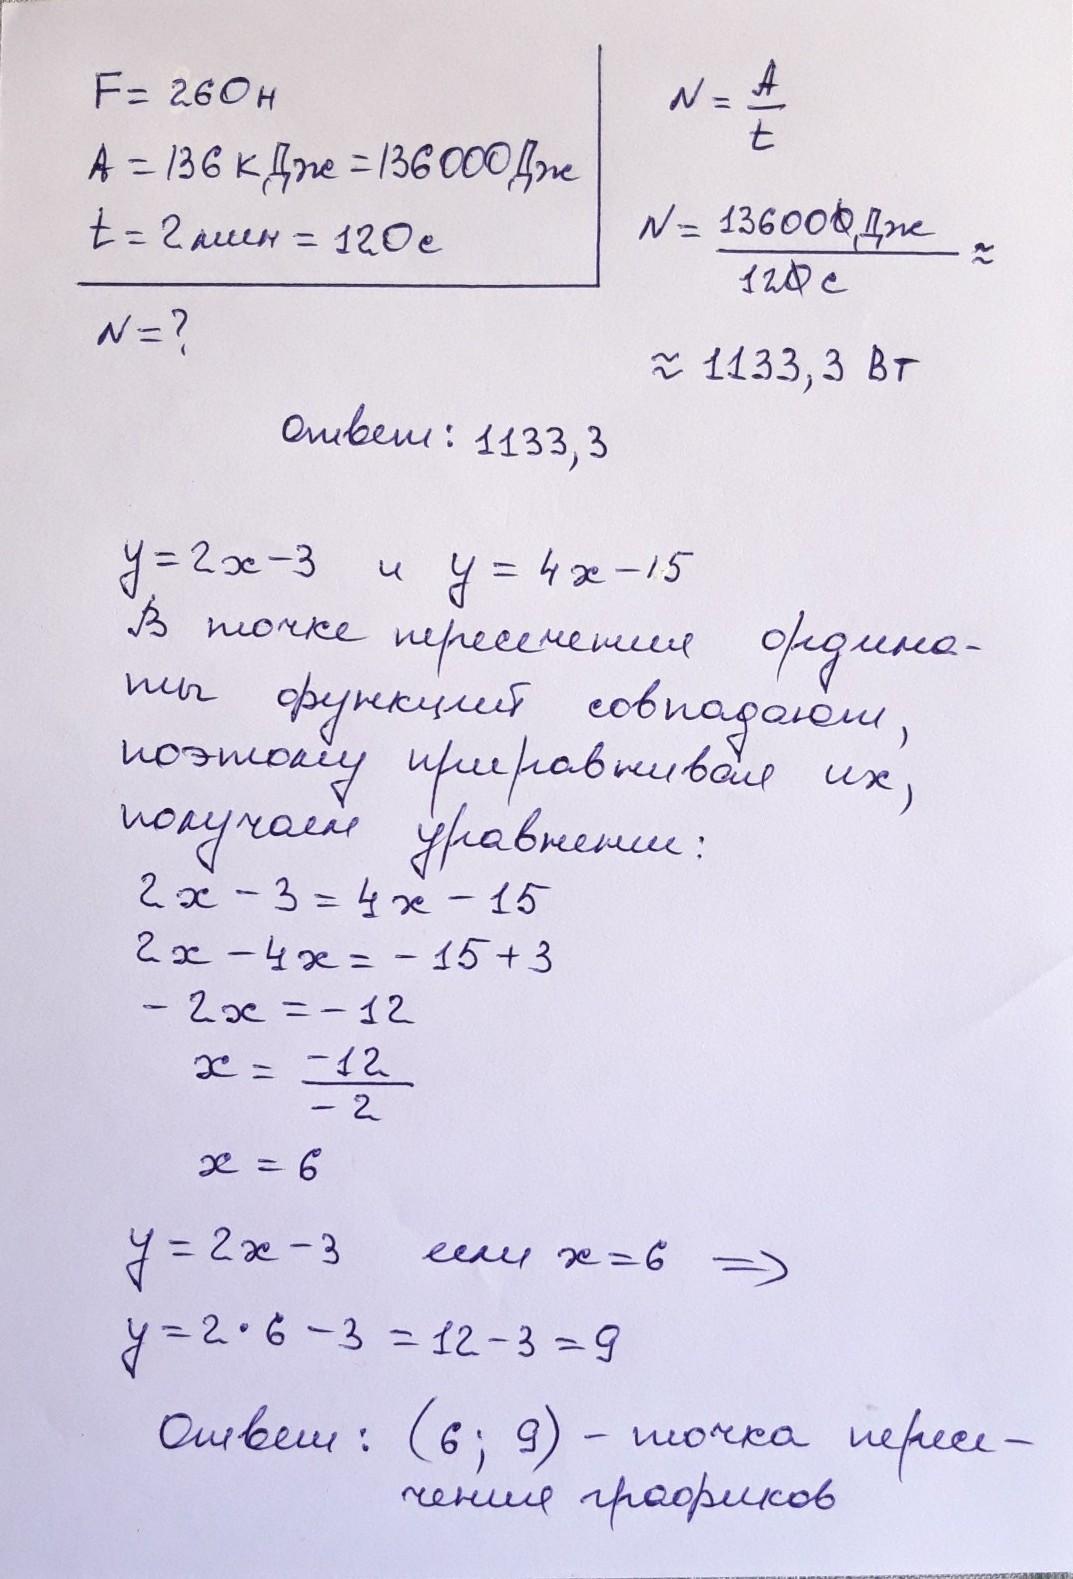 F = 260н
A = 136 кДж = 136000Дж
t = 2мин = 120с
N = ?
N = A/t
N = 136000Дж/120с ≈
≈ 1133,3 Вт
Ответ: 1133,3
y = 2x - 3 и y = 4x - 15
В точке пересечения ордина-
ты функций совпадают,
поэтому приравнивая их,
получаем уравнение:
2x - 3 = 4x - 15
2x - 4x = - 15 + 3
- 2x = - 12
x = -12/-2
x = 6
y = 2x - 3 если x = 6 =>
y = 2 · 6 - 3 = 12 - 3 = 9
Ответ: (6; 9) - точка пересе-
чения графиков